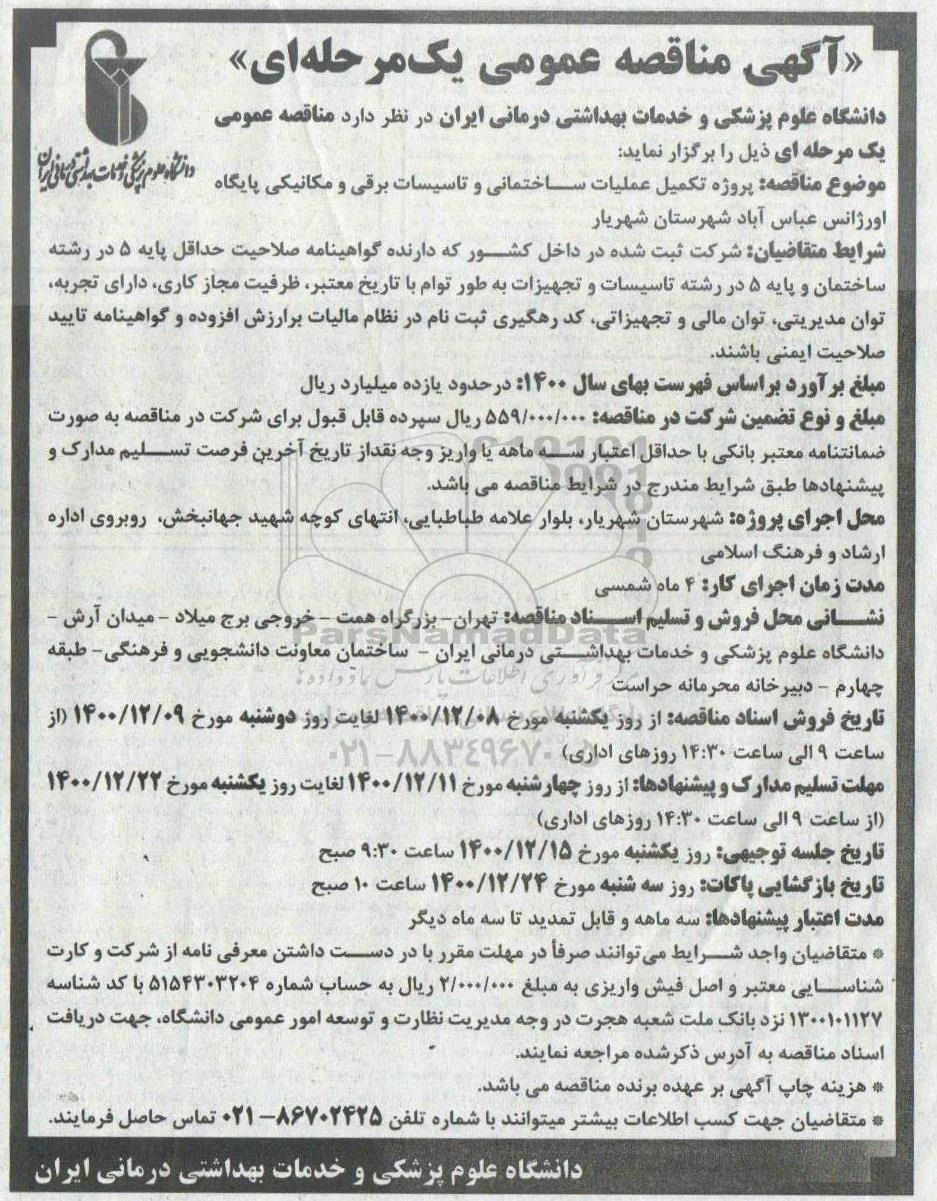 «آگهی مناقصه عمومی یک‌مرحله‌ای»
دانشگاه علوم پزشکی و خدمات بهداشتی درمانی ایران
دانشگاه علوم پزشکی و خدمات بهداشتی درمانی ایران در نظر دارد مناقصه عمومی
یک مرحله ای ذیل را برگزار نماید:
موضوع مناقصه: پروژه تکمیل عملیات ساختمانی و تاسیسات برقی و مکانیکی پایگاه
اورژانس عباس آباد شهرستان شهریار
شرایط متقاضیان: شرکت ثبت شده در داخل کشور که دارنده گواهینامه صلاحیت حداقل پایه ۵ در رشته
ساختمان و پایه ۵ در رشته تاسیسات و تجهیزات به طور توام با تاریخ معتبر، ظرفیت مجاز کاری، دارای تجربه،
توان مدیریتی، توان مالی و تجهیزاتی، کد رهگیری ثبت نام در نظام مالیات برارزش افزوده و گواهینامه تایید
صلاحیت ایمنی باشند.
مبلغ برآورد براساس فهرست بهای سال ۱۴۰۰: درحدود یازده میلیارد ریال
مبلغ و نوع تضمین شرکت در مناقصه: ۵۵۹/۰۰۰/۰۰۰ ریال سپرده قابل قبول برای شرکت در مناقصه به صورت
ضمانتنامه معتبر بانکی با حداقل اعتبار سه ماهه یا واریز وجه نقداز تاریخ آخرین فرصت تسلیم مدارک و
پیشنهادها طبق شرایط مندرج در شرایط مناقصه می باشد.
محل اجرای پروژه: شهرستان شهریار، بلوار علامه طباطبایی، انتهای کوچه شهید جهانبخش، روبروی اداره
ارشاد و فرهنگ اسلامی
مدت زمان اجرای کار: ۴ ماه شمسی
نشانی محل فروش و تسلیم اسناد مناقصه: تهران- بزرگراه همت - خروجی برج میلاد - میدان آرش -
دانشگاه علوم پزشکی و خدمات بهداشتی درمانی ایران - ساختمان معاونت دانشجویی و فرهنگی- طبقه
چهارم - دبیرخانه محرمانه حراست
تاریخ فروش اسناد مناقصه: از روز یکشنبه مورخ ۱۴۰۰/۱۲/۰۸ لغایت روز دوشنبه مورخ ۱۴۰۰/۱۲/۰۹ (از
ساعت ۹ الی ساعت ۱۴:۳۰ روزهای اداری)
مهلت تسلیم مدارک و پیشنهادها: از روز چهارشنبه مورخ ۱۴۰۰/۱۲/۱۱ لغایت روز یکشنبه مورخ ۱۴۰۰/۱۲/۲۲
(از ساعت ۹ الی ساعت ۱۴:۳۰ روزهای اداری)
تاریخ جلسه توجیهی: روز یکشنبه مورخ ۱۴۰۰/۱۲/۱۵ ساعت ۹:۳۰ صبح
تاریخ بازگشایی پاکات: روز سه شنبه مورخ ۱۴۰۰/۱۲/۲۴ ساعت ۱۰ صبح
مدت اعتبار پیشنهادها: سه ماهه و قابل تمدید تا سه ماه دیگر
* متقاضیان واجد شرایط می‌توانند صرفاً در مهلت مقرر با در دست داشتن معرفی نامه از شرکت و کارت
شناسایی معتبر و اصل فیش واریزی به مبلغ ۲/۰۰۰/۰۰۰ ریال به حساب شماره ۵۱۵۴۳۰۳۲۰۴ با کد شناسه
۱۳۰۰۱۰۱۱۲۷ نزد بانک ملت شعبه هجرت در وجه مدیریت نظارت و توسعه امور عمومی دانشگاه، جهت دریافت
اسناد مناقصه به آدرس ذکرشده مراجعه نمایند.
* هزینه چاپ آگهی بر عهده برنده مناقصه می باشد.
* متقاضیان جهت کسب اطلاعات بیشتر میتوانند با شماره تلفن ۸۶۷۰۲۴۲۵-۰۲۱ تماس حاصل فرمایند.
دانشگاه علوم پزشکی و خدمات بهداشتی درمانی ایران
ParsNamadData
۰۲۱-۸۸۳۴۹۶۷۰